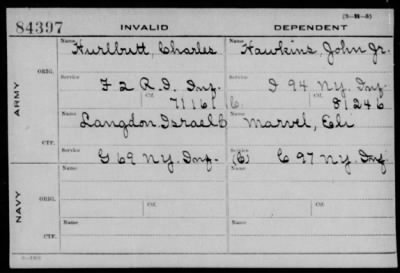 (3-98-5)
84397 INVALID DEPENDENT
Name Hurlbutt, Charles Name Hawkins, John Jr.
ARMY ORIG. Service F 2 R.I. Inf. Service I 94 N.Y. Inf.
Ctf. 71161 C. Ctf. 81246
Name Langdon, Israel C Name Marvel, Eli
CTF. Service G 69 N.Y. Inf. Service C 97 N.Y. Inf.
NAVY ORIG. Name Name
Service Service
Name Name
CTF. Service Service